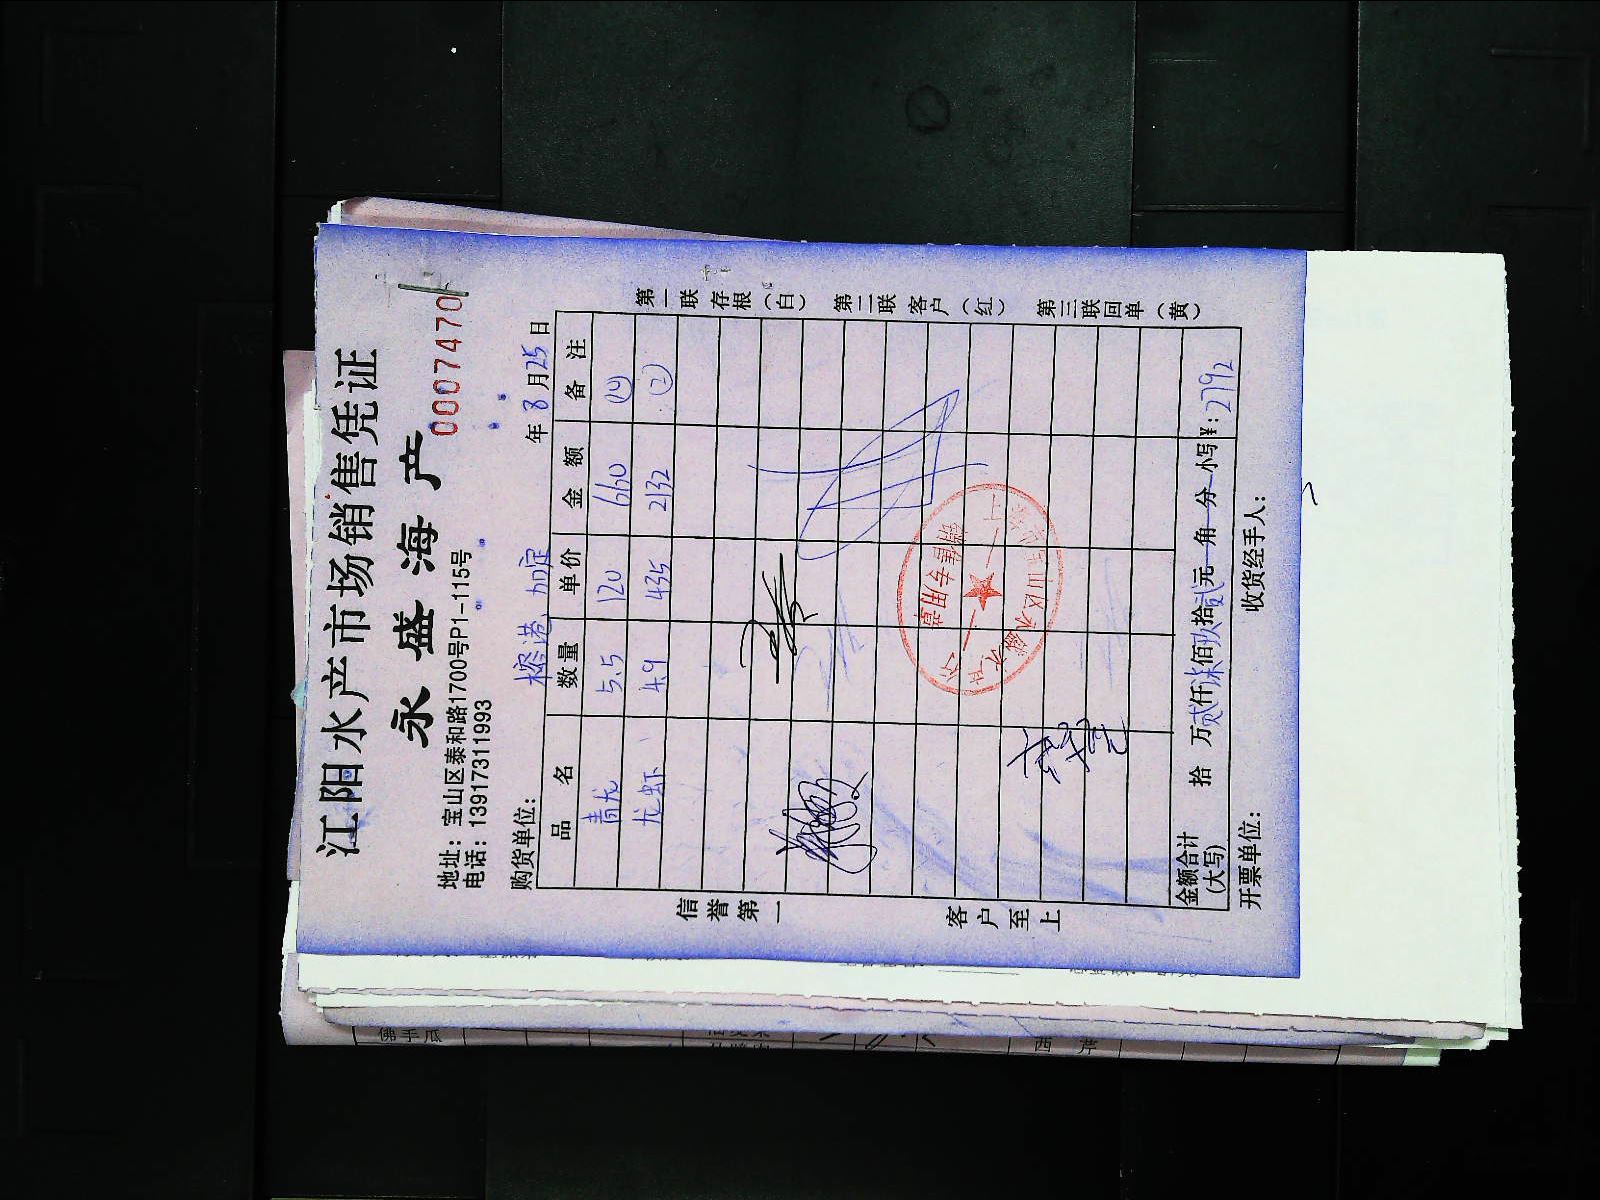 江阳水产市场销售凭证
永盛海产 0007470
地址：宝山区泰和路1700号P1-115号
电话：13917311993
购货单位： 榕港加定 年 8 月 25 日
品名 数量 单价 金额 备注
青龙 5.5 120 660 ④
龙虾 4.9 435 2132 ②
金额合计（大写） 拾 万 贰 仟 柒 佰 玖 拾 贰 元 角 分 小写¥：2792
开票单位： 收货经手人：
信誉第一 客户至上
第一联存根（白） 第二联客户（红） 第三联回单（黄）
销售专用章
佛手瓜